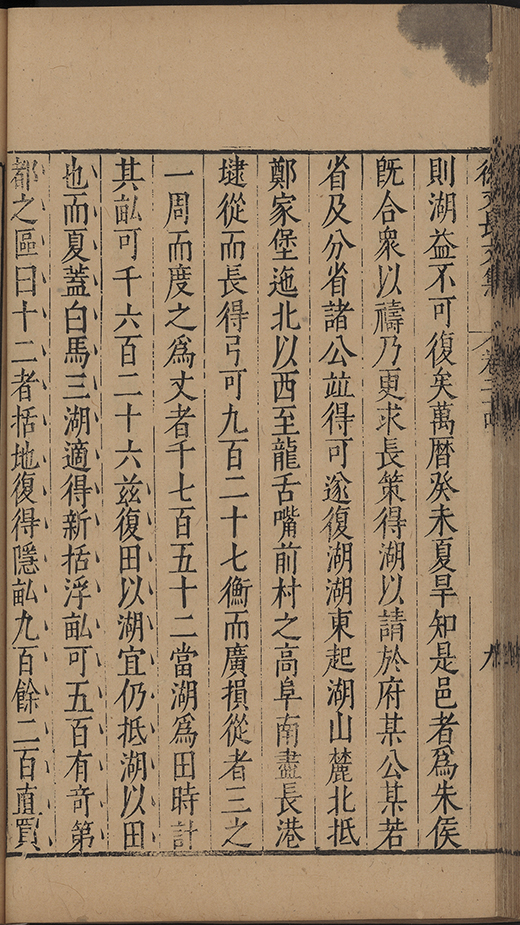 徐文長文集 卷二十四 九
則湖益不可復矣萬曆癸未夏旱知是邑者爲朱侯
旣合衆以禱乃更求長策得湖以請於府某公某若
省及分省諸公竝得可遂復湖湖東起湖山麓北抵
鄭家堡迤北以西至龍舌嘴前村之高阜南盡長港
埭從而長得弓可九百二十七衡而廣損從者三之
一周而度之爲丈者千七百五十二當湖爲田時計
其畝可千六百二十六兹復田以湖宜仍抵湖以田
也而夏蓋白馬三湖適得新括浮畝可五百有奇第
都之區曰十二者括地復得隱畝九百餘二百直買